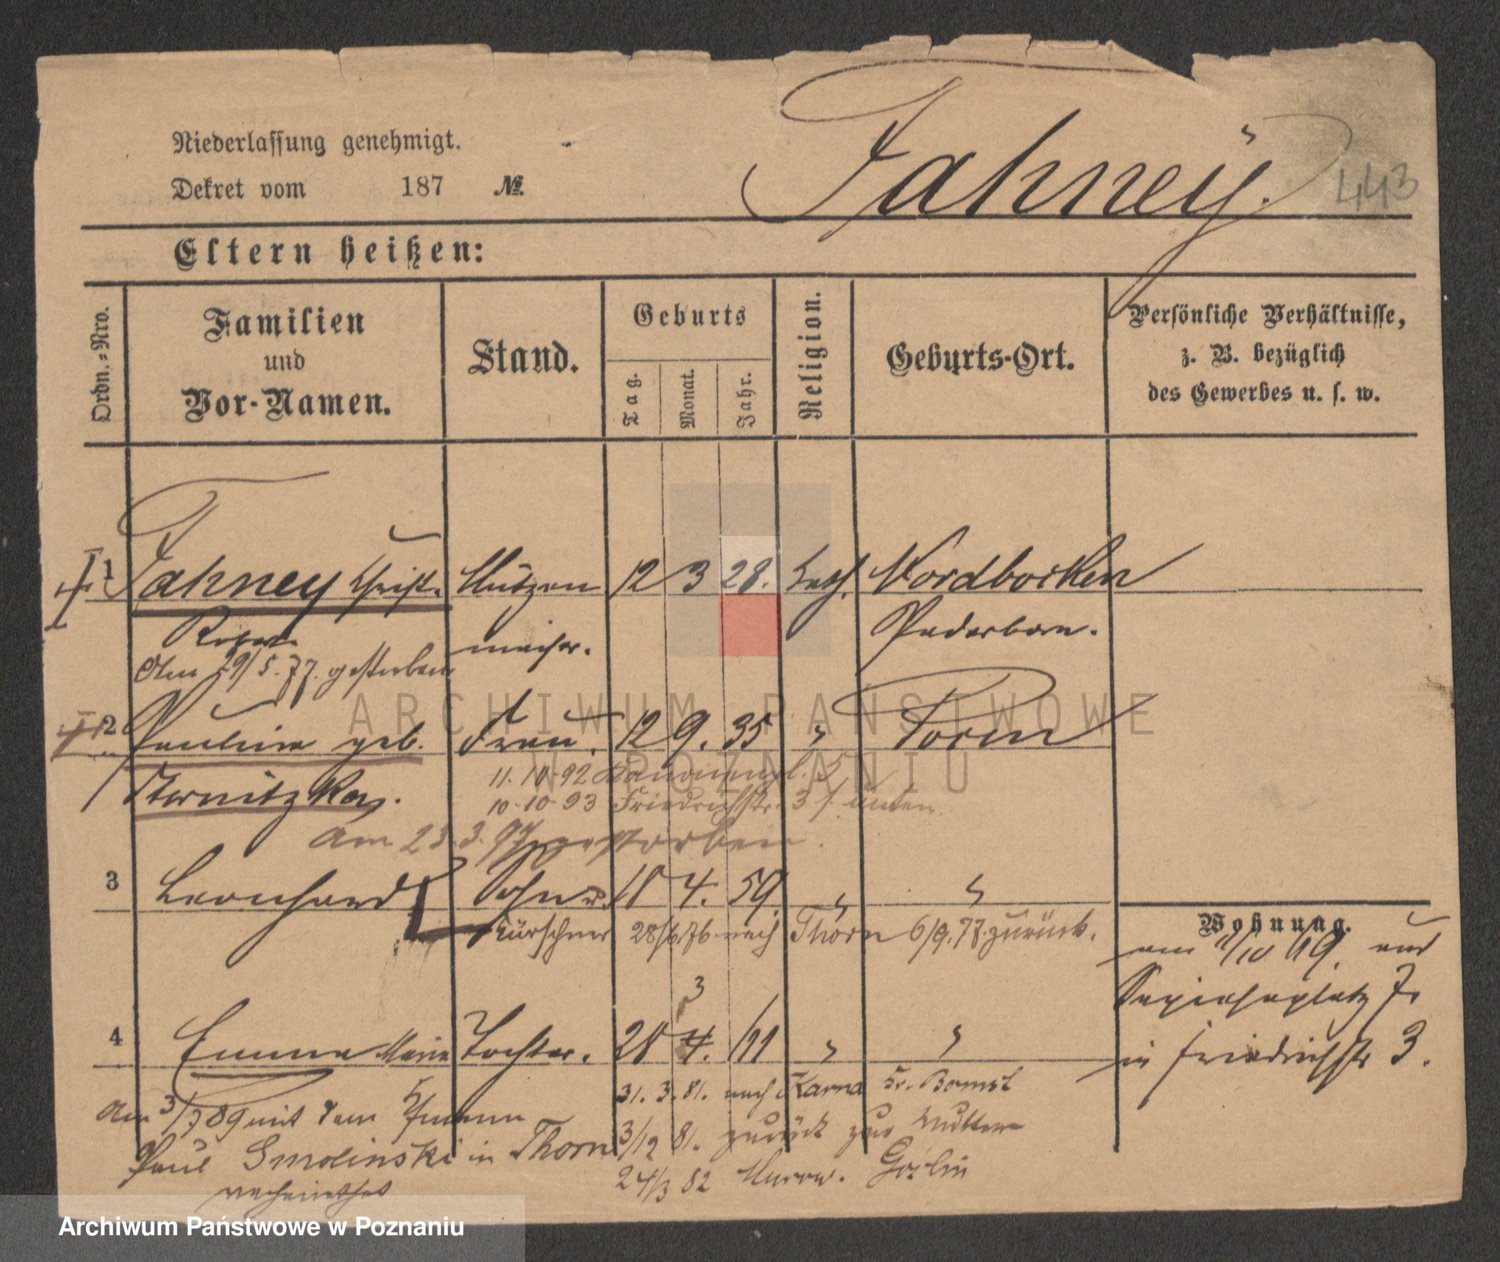 Niederlassung genehmigt.
Dekret vom 187 №.
Jahney.
443
Eltern heißen:
Ordn.-Nro.
Familien
und
Vor-Namen.
Stand.
Geburts
Tag.
Monat.
Jahr.
Religion.
Geburts-Ort.
Persönliche Verhältnisse,
z. B. bezüglich
des Gewerbes u. s. w.
1 Jahney Christ. Mützen 12 3 28. kath. Nordborken
Robert macher. Paderborn.
Am 29/5. 77. gestorben
ARCHIWUM PAŃSTWOWE
W POZNANIU
2 Pauline geb. Frau. 12 9. 35 " Posen
11. 10. 92
10. 10. 93 Friedrichstr. 3 unten
am 23. 3. 97 gestorben.
3 Leonhard Sohn 18 4. 59. " "
Kürschner 28/6. 76. nach Thorn 6/9. 77. zurück.
Wohnung.
am 1/10 69. aus
Sapiehaplatz 7.
in Friedrichstr 3.
3
4 Emma Marie Tochter. 28 4. " "
31. 3. 81. nach Karna Kr. Bomst
Am 3/7 89 mit dem
3/12 81. zurück zur Mutter
Paul Smolinski in Thorn
24/3 82
verheirathet
Archiwum Państwowe w Poznaniu